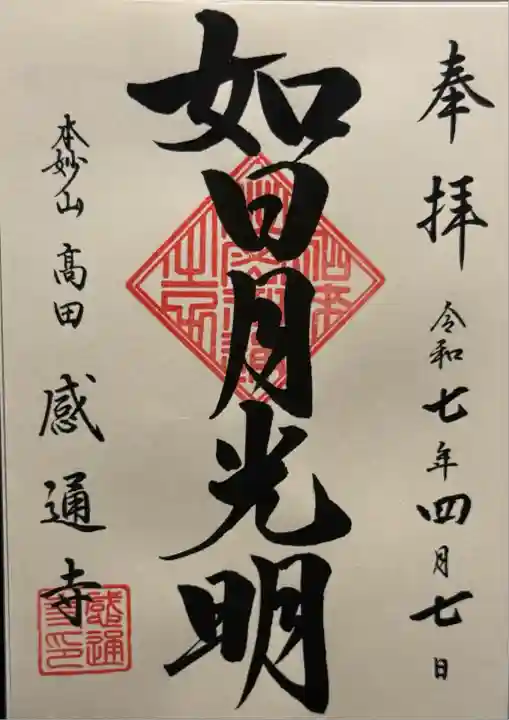 奉拝 令和七年四月七日
如日月光明
本妙山 高田 感通寺